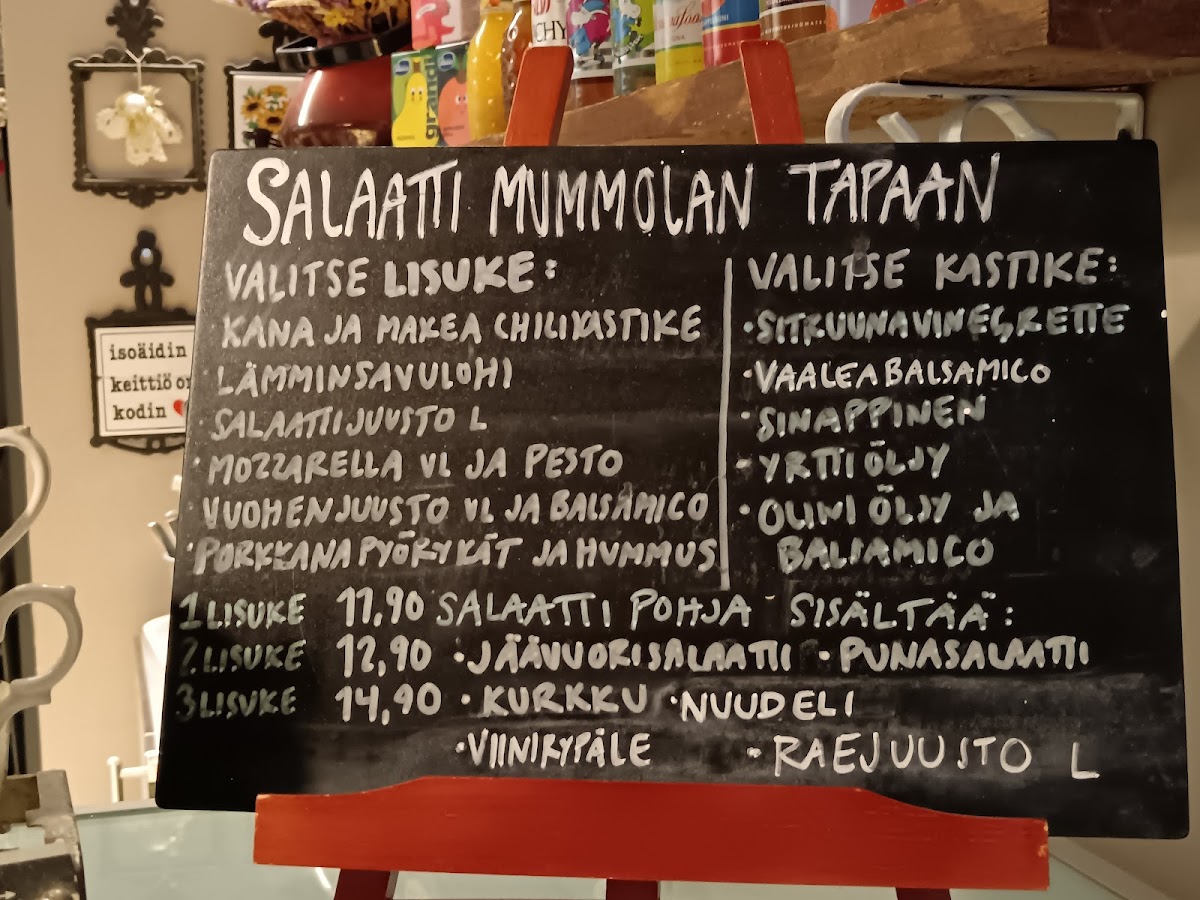 SALAATTI MUMMOLAN TAPAAN
VALITSE LISUKE:
KANA JA MAKEA CHILIKASTIKE
· LÄMMINSAVULOHI
· SALAATTIJUUSTO L
· MOZZARELLA VL JA PESTO
· VUOHENJUUSTO VL JA BALSAMICO
· PORKKANAPYÖRYKÄT JA HUMMUS
VALITSE KASTIKE:
· SITRUUNAVINEGRETTE
· VAALEA BALSAMICO
· SINAPPINEN
· YRTTIÖLJY
· OLIIVIÖLJY JA
BALSAMICO
1 LISUKE 11,90
2 LISUKE 12,90
3 LISUKE 14,90
SALAATTI POHJA SISÄLTÄÄ:
· JÄÄVUORISALAATTI · PUNASALAATTI
· KURKKU · NUUDELI
· VIINIRYPÄLE · RAEJUUSTO L
isoäidin
keittiö on
kodin